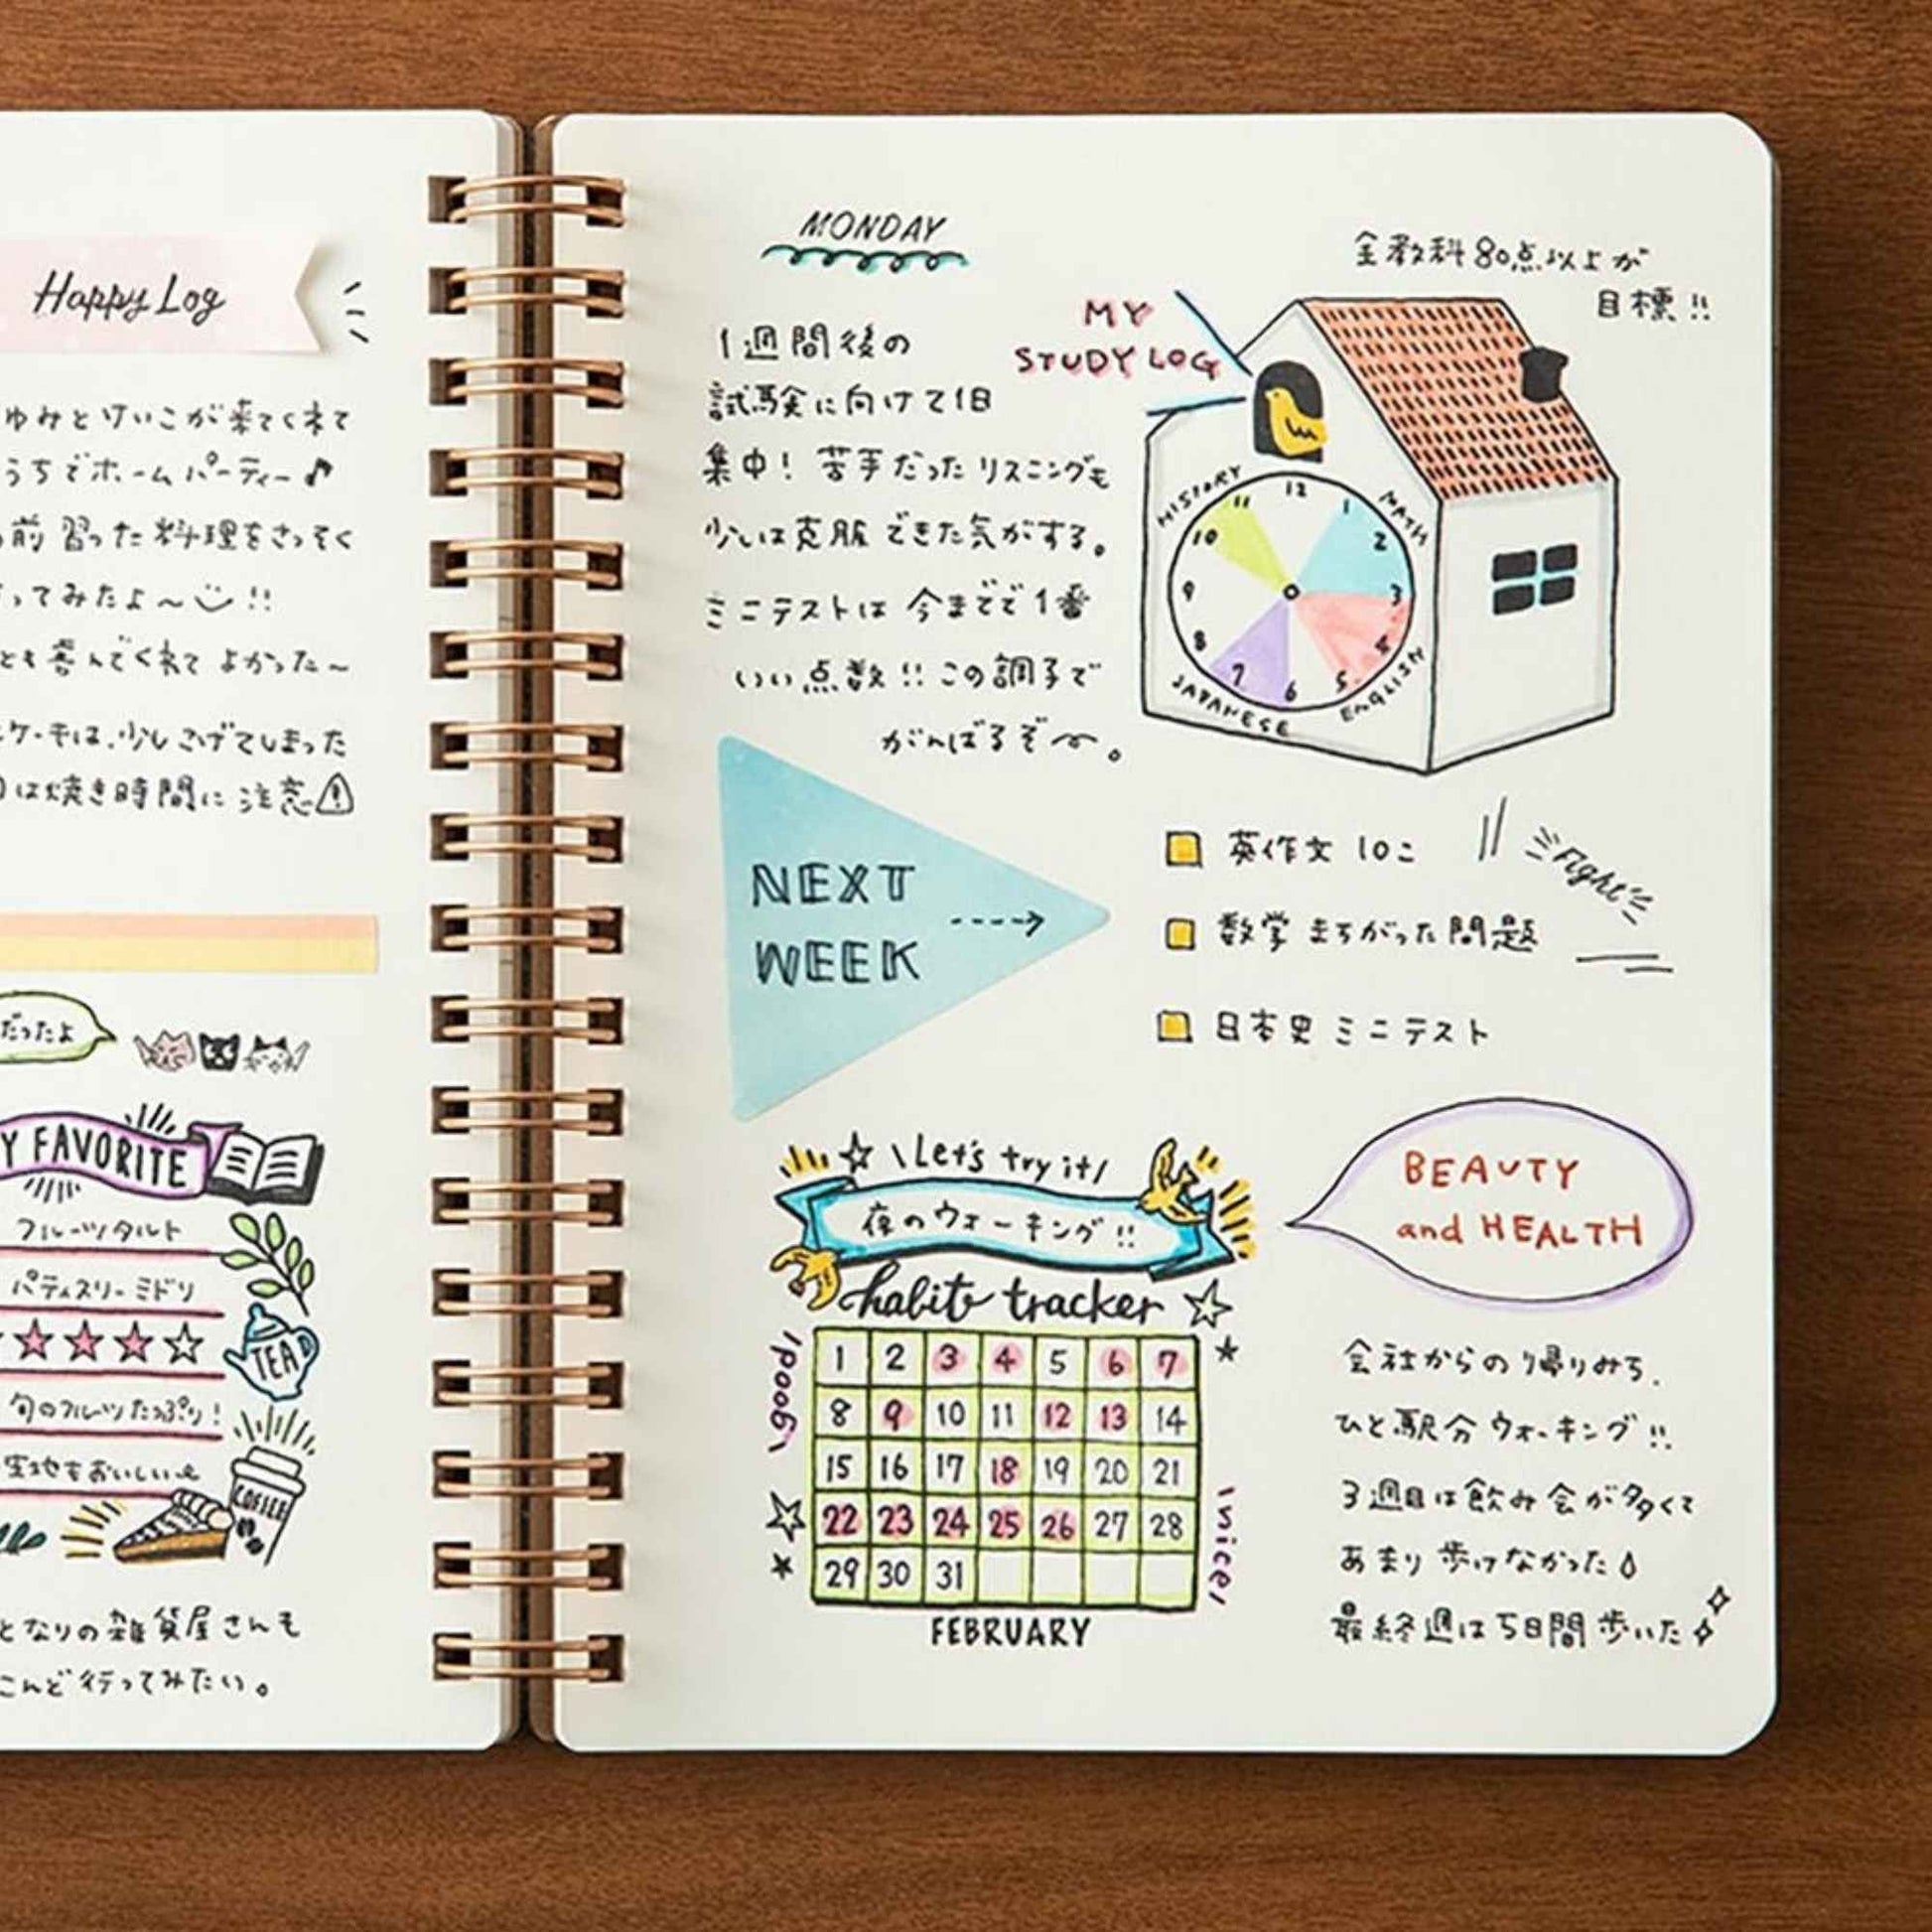 Happy Log
ゆみとけいこが来てくれて
うちでホームパーティー♪
前習った料理をさっそく
ってみたよ〜!!
とも喜んでくれてよかった〜
ケーキは、少しこげてしまった
は焼き時間に注意
だったよ
Y FAVORITE
フルーツタルト
パティスリーミドリ
TEA
旬のフルーツたっぷり!
生地もおいしい
COFFEE
となりの雑貨屋さんも
こんど行ってみたい。
MONDAY
1週間後の
試験に向けて1日
集中! 苦手だったリスニングも
少しは克服できた気がする。
ミニテストは今までで1番
いい点数!! この調子で
がんばるぞ〜。
MY
STUDY LOG
全教科80点以上が
目標!!
HISTORY
MATH
ENGLISH
JAPANESE
12
1
2
3
4
5
6
7
8
9
10
11
NEXT
WEEK
英作文 10こ
数学 まちがった問題
日本史ミニテスト
Fight
\Let's try it/
夜のウォーキング!!
habits tracker
/good\
1 2 3 4 5 6 7
8 9 10 11 12 13 14
15 16 17 18 19 20 21
22 23 24 25 26 27 28
29 30 31
\nice/
FEBRUARY
BEAUTY
and HEALTH
会社からの帰りみち、
ひと駅分ウォーキング!!
3週目は飲み会が多くて
あまり歩けなかった
最終週は5日間歩いた